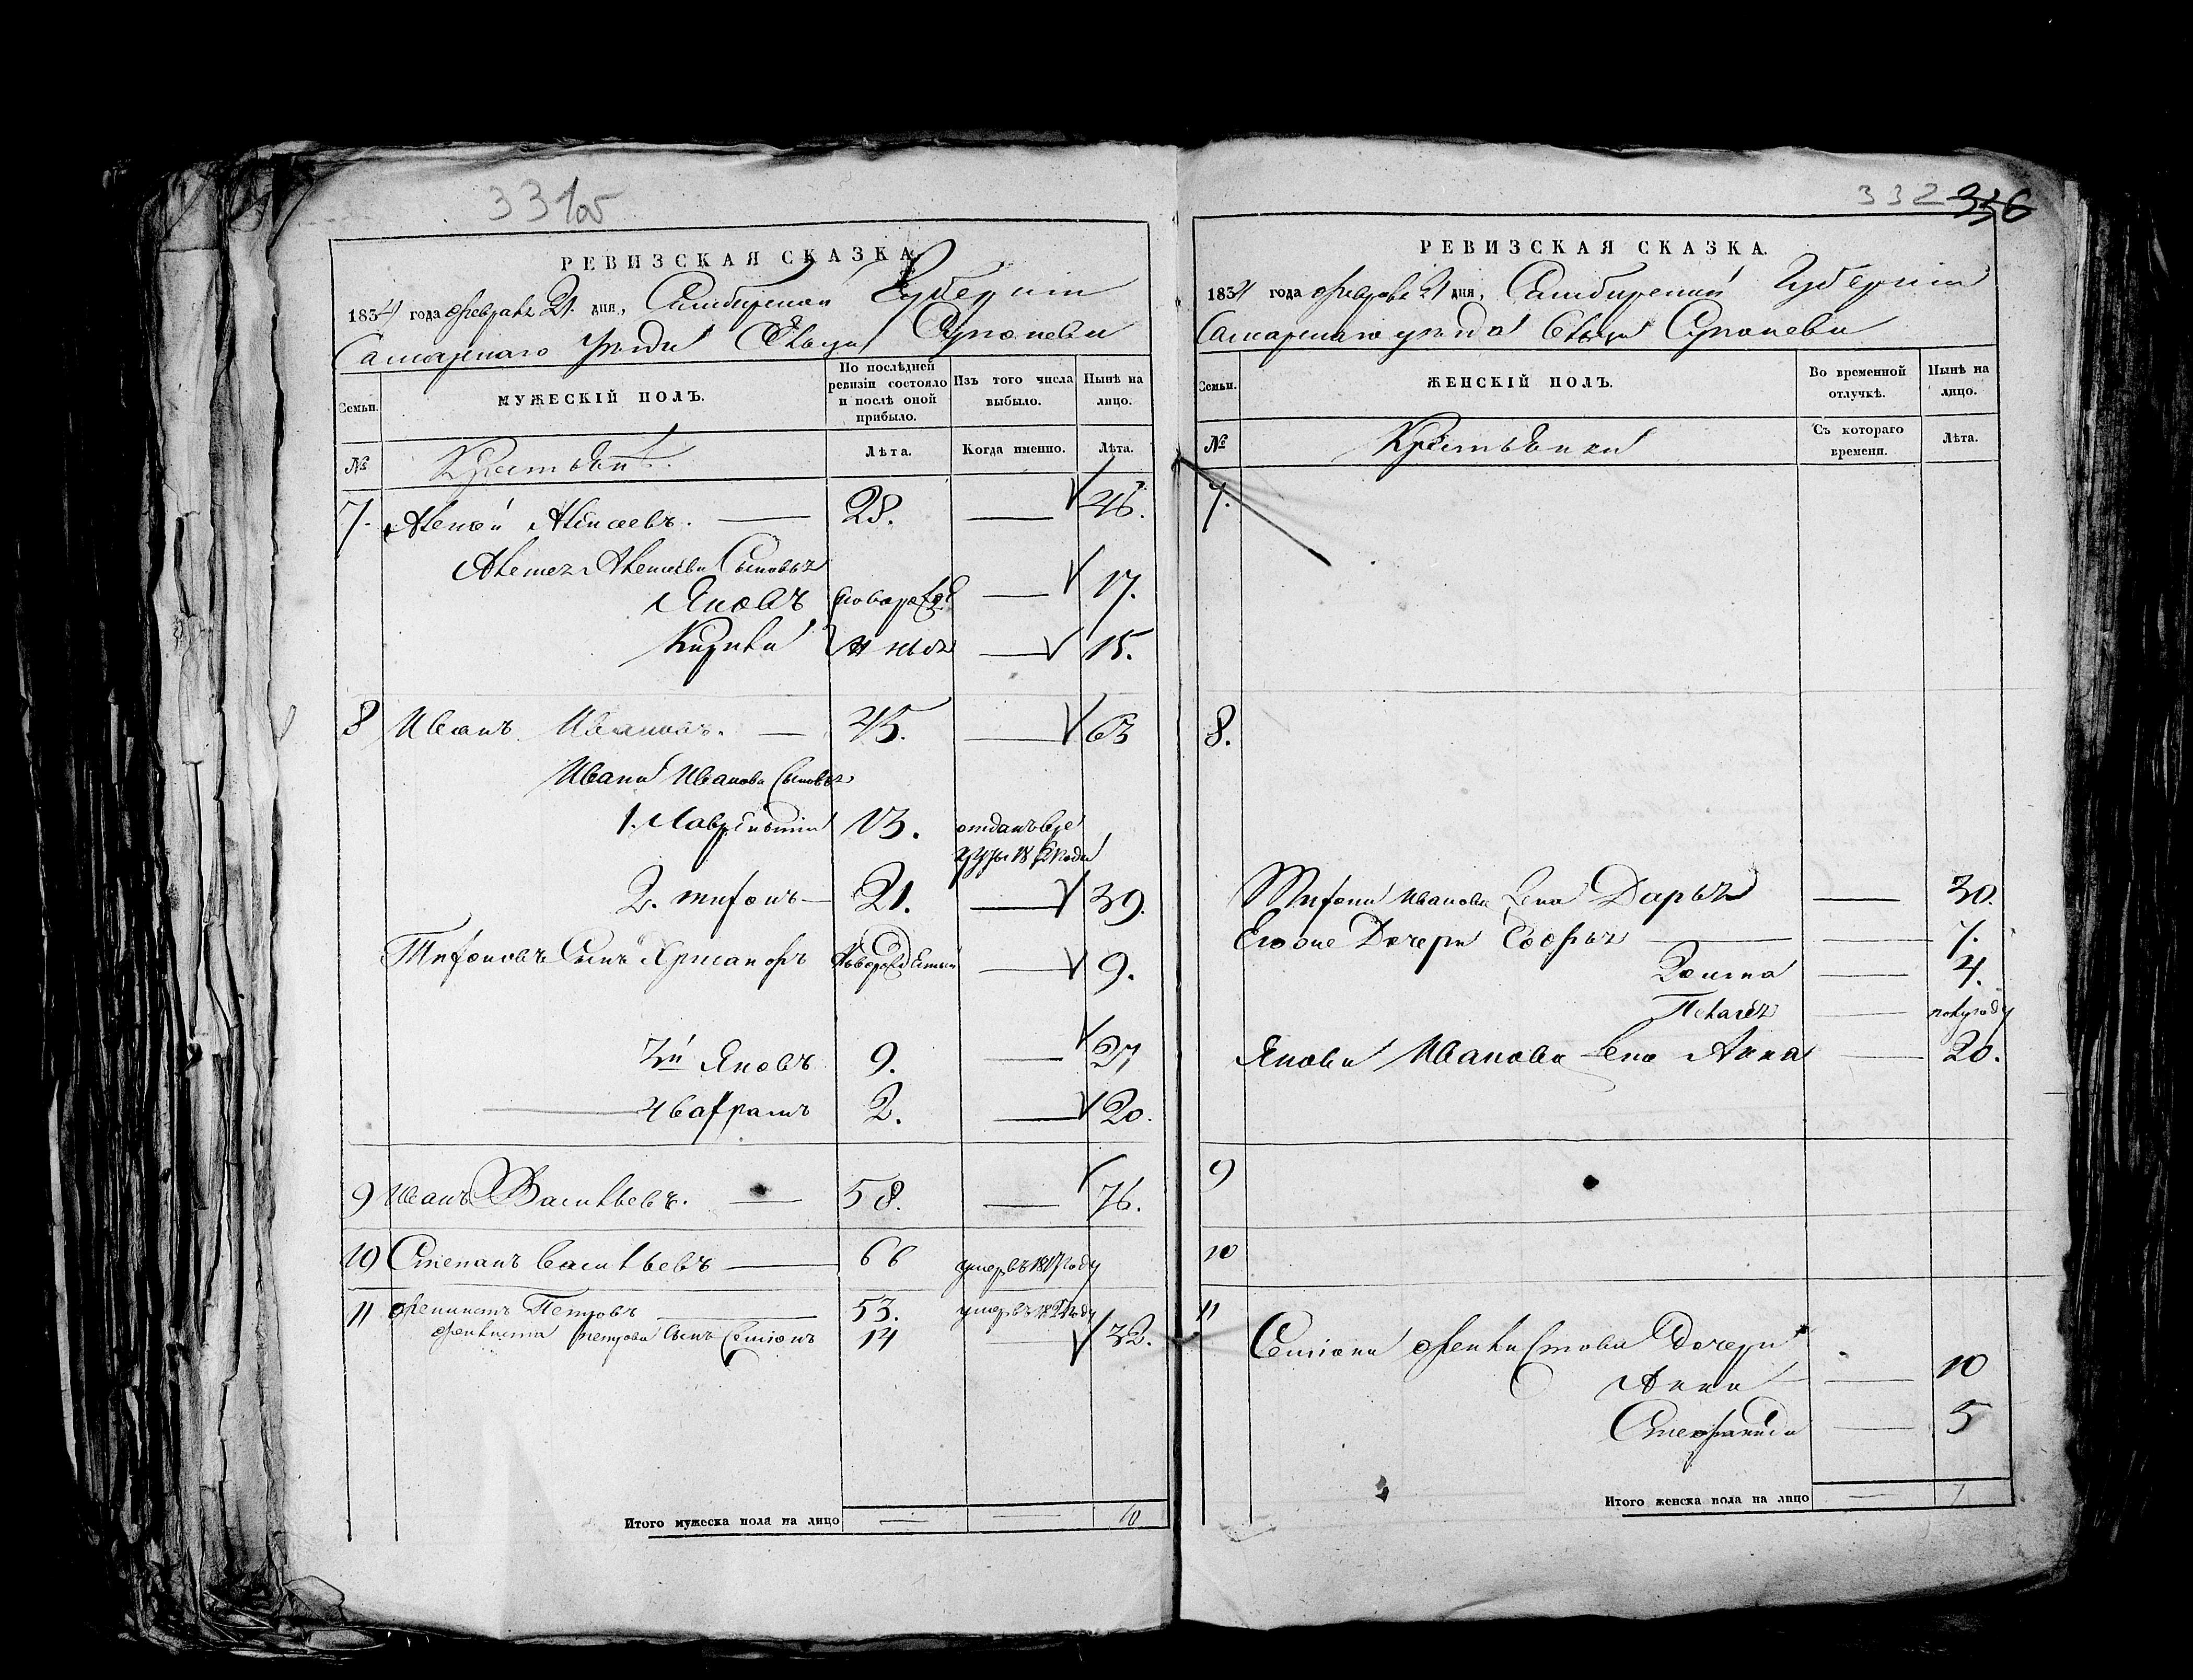 331об
РЕВИЗСКАЯ СКАЗКА
1834 года февраля 21 дня, Симбирской Губерніи
Самарскаго уезда Сельца
МУЖЕСКІЙ ПОЛЪ.
Семьи.
По послѣдней ревизіи состояло и послѣ оной прибыло.
Изъ того числа выбыло.
Нынѣ на лицо.
№
Крестьяне.
Лѣта.
Когда именно.
Лѣта.
7. Алексей Алексеевъ. — 28. — 46.
Алексея Алексеева Сыновья
Яковъ новорожде — 17.
Кирила нные — 15.
8 Иванъ Ивановъ. — 45. — 63
Ивана Иванова Сыновья
1. Лаврентій 13. отданъ въ ре
круты 18 году
2. Тифонъ — 21. — 39.
Тифоновъ Сынъ Хрисанфъ новорожденный — 9.
3й Яковъ 9. — 27
4 2. — 20.
9 Иванъ Васильевъ. — 58. — 76.
10 Степанъ Васильевъ — 66 умеръ въ 1817 году
11 Феклистъ Петровъ — 53. умеръ въ году
Феклиста Петрова Сынъ Семіонъ 14 — 32.
Итого мужеска пола на лицо — — 10
332 336
РЕВИЗСКАЯ СКАЗКА.
1834 года февраля 21 дня, Симбирской Губерніи
Самарскаго уезда Сельца
Семьи.
ЖЕНСКІЙ ПОЛЪ.
Во временной отлучкѣ.
Нынѣ на лицо.
№
Крестьянки
Съ котораго времени.
Лѣта.
7.
8.
Тифона Иванова жена Дарья — 30.
Его оне Дочери Софья — — 7.
Домна — 4.
Пелагея — полугоду
Якова Иванова жена Анна — 20.
9
10
11
Семіона Феклистова Дочери
Анна — 10
Стефанида — 5
Итого женска пола на лицо — 7